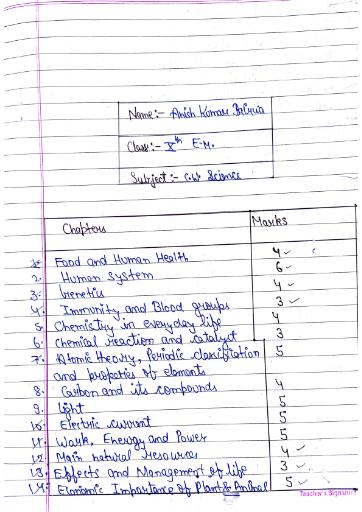 Name:- Anish Kumar
Class:- Xth E.M.
Subject:- C.W Science
Chapters Marks
1. Food and Human Health 4
2. Human System 6
3. Genetics 4
4. Immunity and Blood groups 3
5. Chemistry in everyday life 4
6. Chemical reaction and catalyst 3
7. Atomic theory, Periodic classification 5
and properties of elements
8. Carbon and its compounds 4
9. Light 5
10. Electric current 5
11. Work, Energy and Power 5
12. Main natural resources 4
13. Effects and Management of life 3
14. Economic Importance of Plant & Animal 5
Teacher's Signature